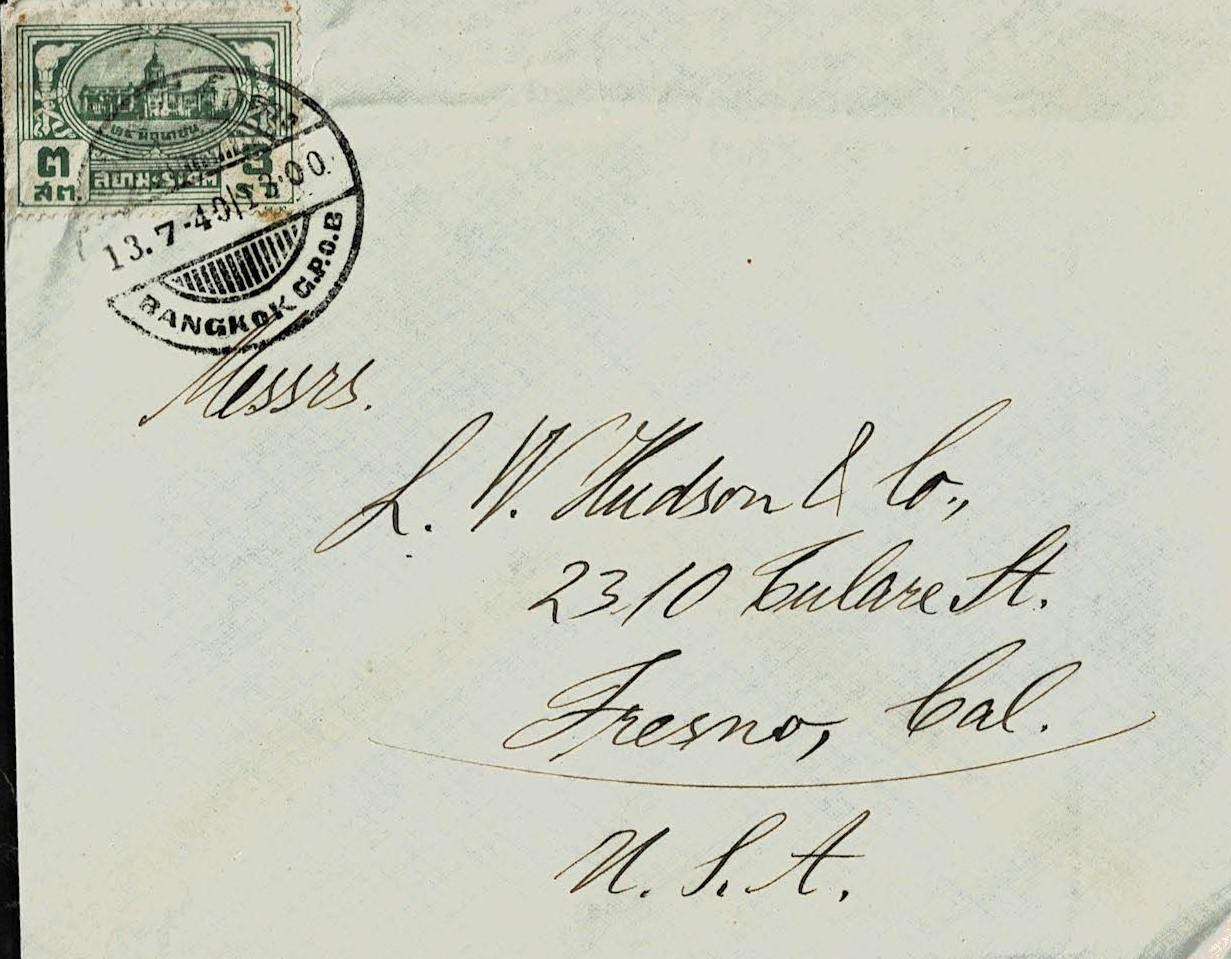 ๒๔ มิถุนายน
๓ 3
สต.
สยาม-SIAM
13.7-40|13·00
BANGKOK G.P.O.B
Messrs.
L. W. Hudson & Co.,
2310 Tulare St.
Fresno, Cal.
U. S. A.